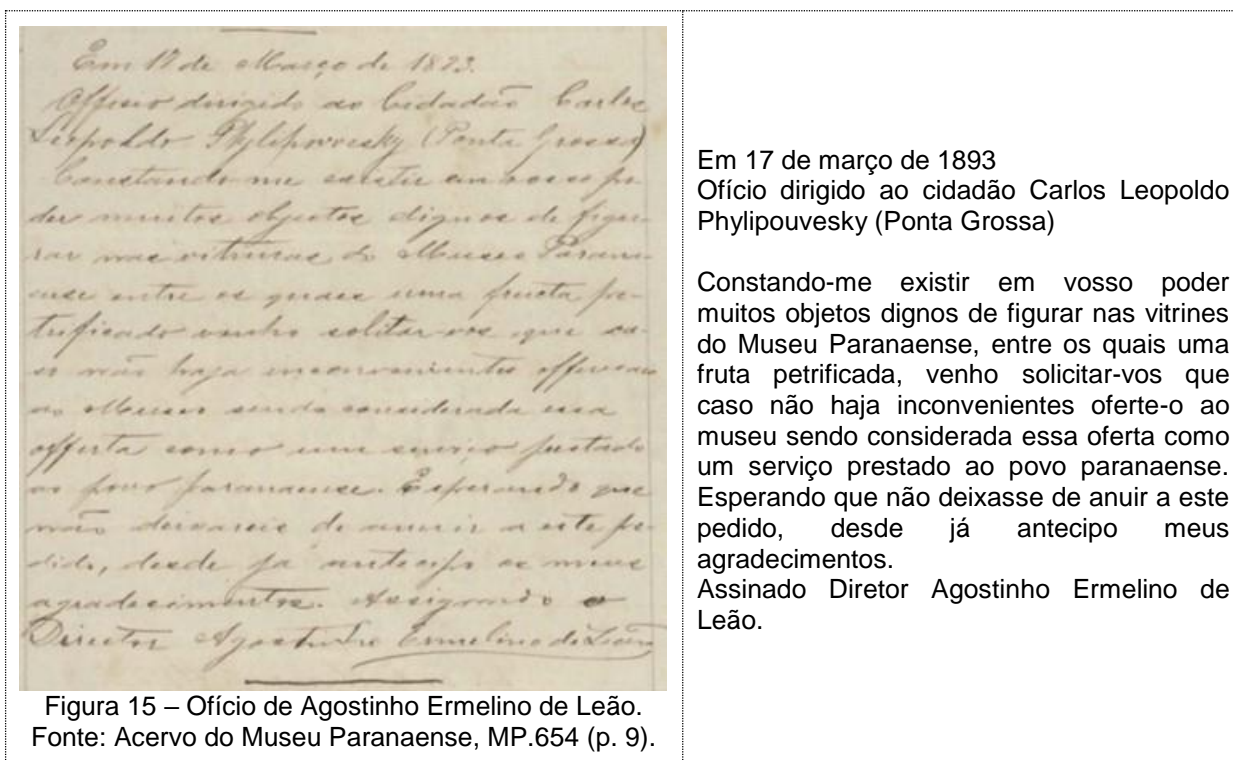 Em 17 de Março de 1893.
Officio dirigido ao Cidadão Carlos
Leopoldo Phylipovvesky (Ponta Grossa)
Constando-me existir em vosso po-
der muitos objectos dignos de figu-
rar nas vitrinas do Museu Parana-
ense entre os quaes uma fructa pe-
trificado venho solitar-vos que ca-
so não haja inconvenientes
ao Museu sendo considerada essa
offerta como um serviço prestado
ao povo paranaense. Esperando que
não deixareis de annuir a este pe-
dido, desde já antecipo os meus
agradecimentos. Assignado o
Director Agostinho Ermelino de Leão
Figura 15 – Ofício de Agostinho Ermelino de Leão.
Fonte: Acervo do Museu Paranaense, MP.654 (p. 9).
Em 17 de março de 1893
Ofício dirigido ao cidadão Carlos Leopoldo
Phylipouvesky (Ponta Grossa)
Constando-me existir em vosso poder
muitos objetos dignos de figurar nas vitrines
do Museu Paranaense, entre os quais uma
fruta petrificada, venho solicitar-vos que
caso não haja inconvenientes oferte-o ao
museu sendo considerada essa oferta como
um serviço prestado ao povo paranaense.
Esperando que não deixasse de anuir a este
pedido, desde já antecipo meus
agradecimentos.
Assinado Diretor Agostinho Ermelino de
Leão.